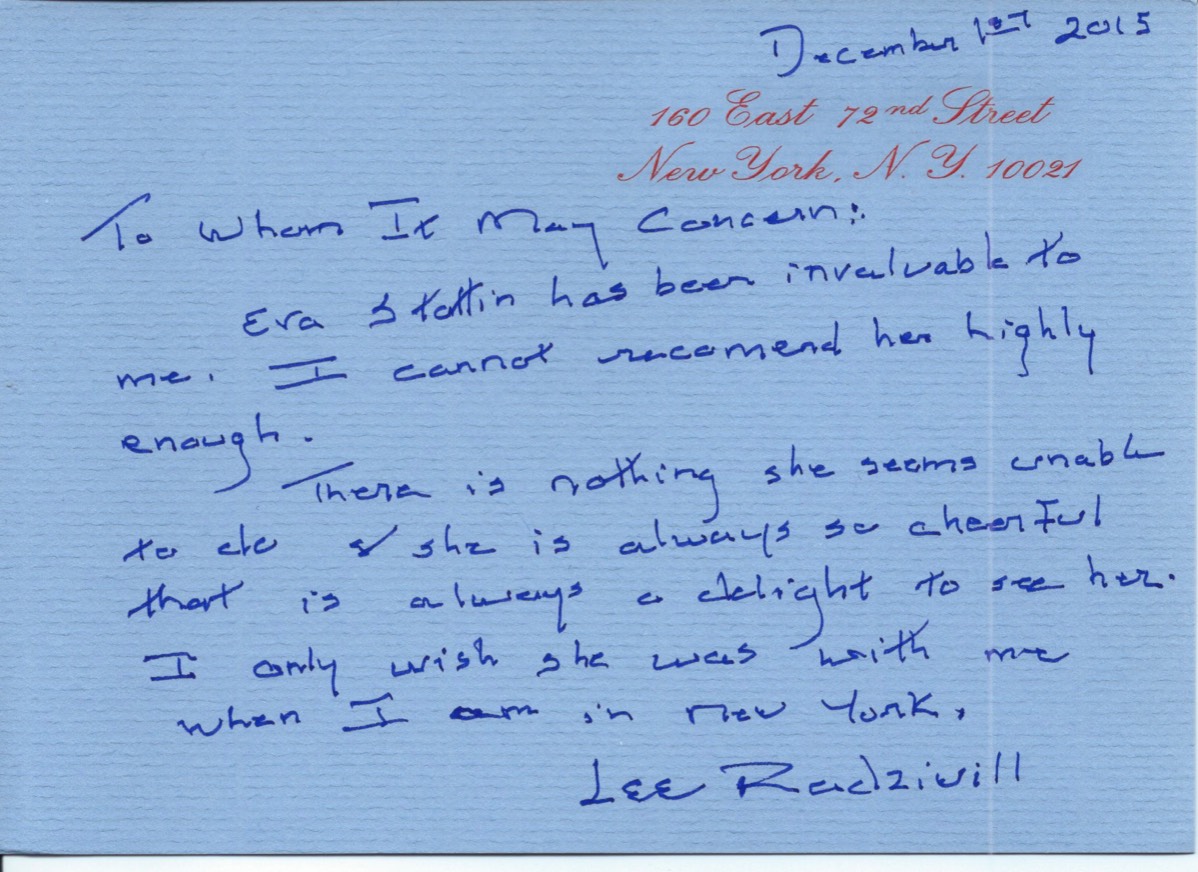 December 1st 2015
160 East 72nd Street
New York, N. Y. 10021
To Whom It May Concern:
Eva Stattin has been invaluable to
me. I cannot recomend her highly
enough.
There is nothing she seems unable
to do & she is always so cheerful
that is always a delight to see her.
I only wish she was with me
when I am in New York.
Lee Radziwill